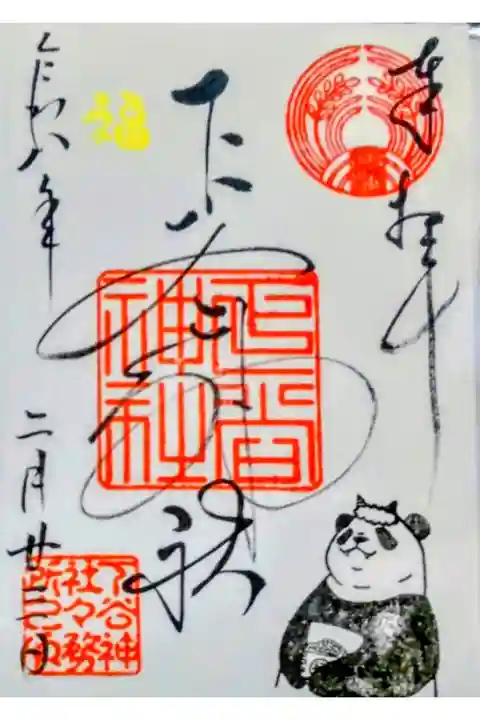 奉拝
下谷神社
下谷
神社
福
令和八年
二月廿
下谷神
社々務
所之印